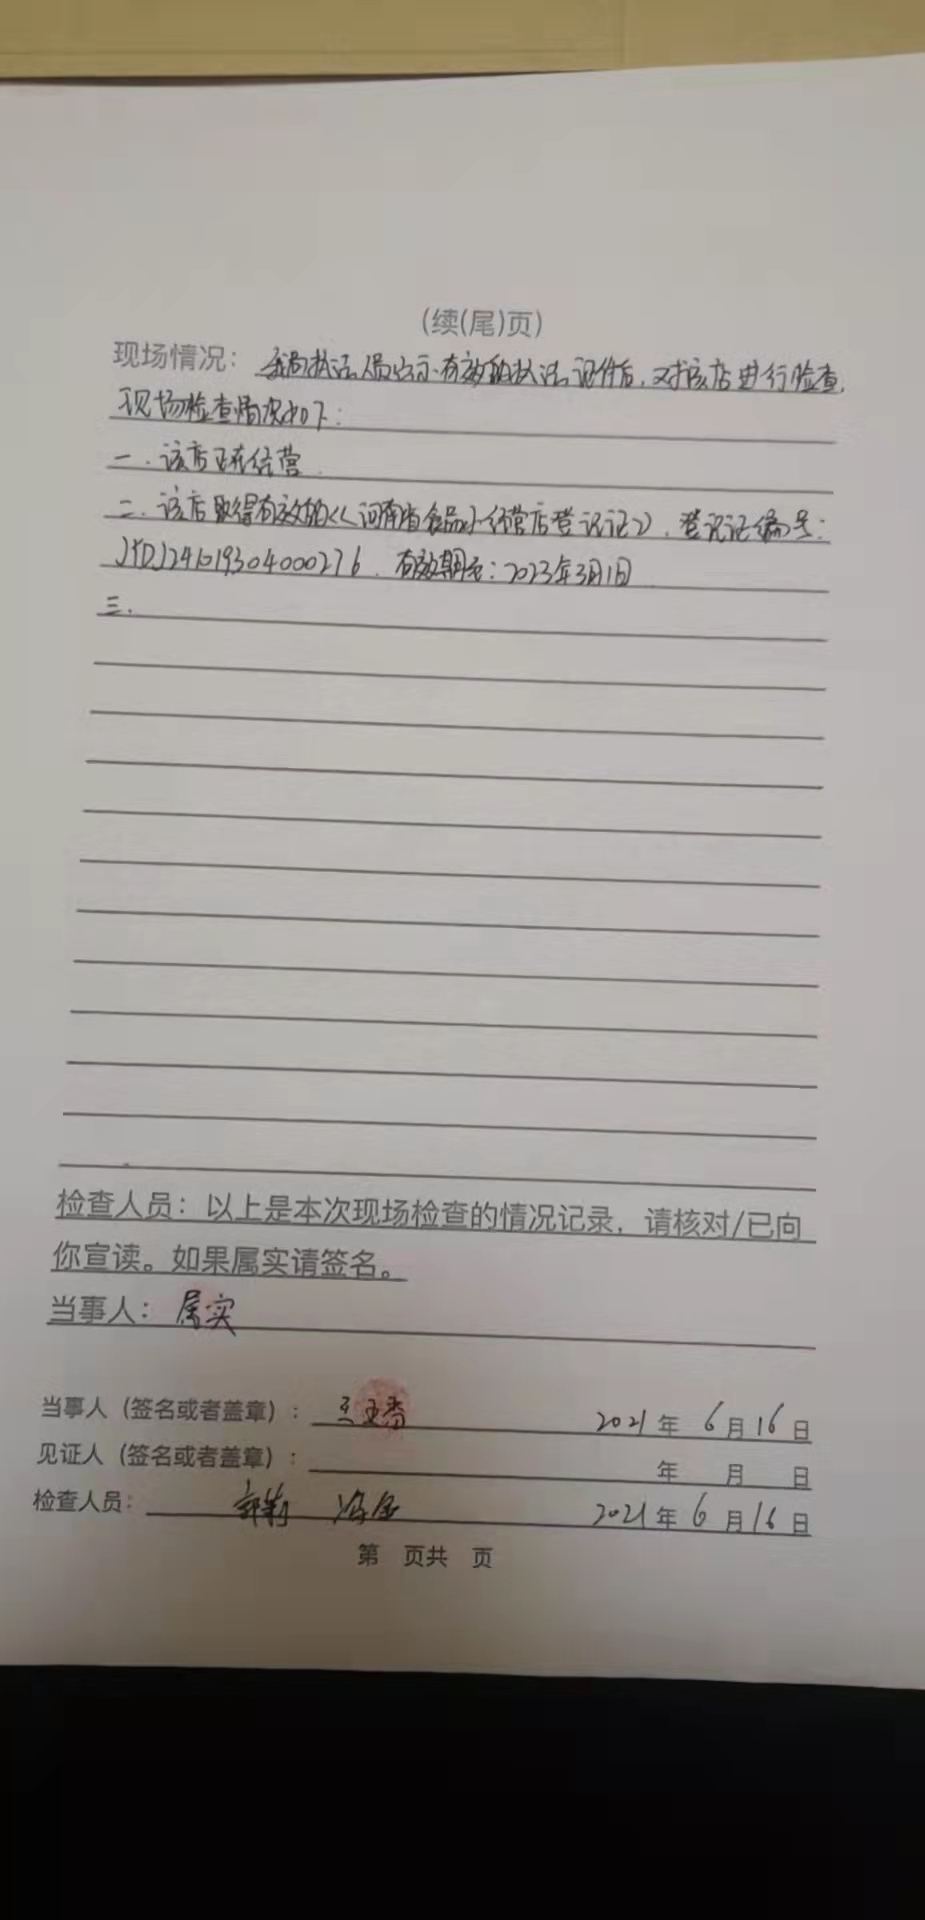 (续(尾)页)
现场情况: 我局执法人员出示有效的执法证件后,对该店进行检查,
现场检查情况如下:
一.该店正在经营
二.该店取得有效的《河南省食品小经营店登记证》,登记证编号:
JYDJ241019304000276.有效期至:2023年3月1日
三.
检查人员: 以上是本次现场检查的情况记录, 请核对/已向
你宣读。如果属实请签名。
当事人: 属实
当事人 (签名或者盖章) : 2021 年 6 月 16 日
见证人 (签名或者盖章) : 年 月 日
检查人员: 2021 年 6 月 16 日
第 页共 页